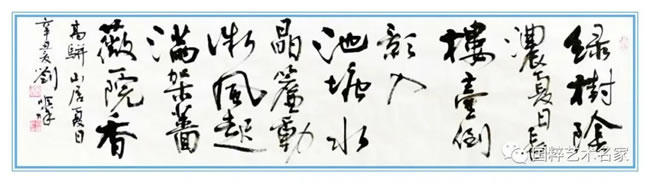 绿樹陰
濃夏日長
樓臺倒
影入
池塘水
晶簾動
微風起
满架薔
薇院香
高駢山居夏日
辛 劉
国粹艺术名家